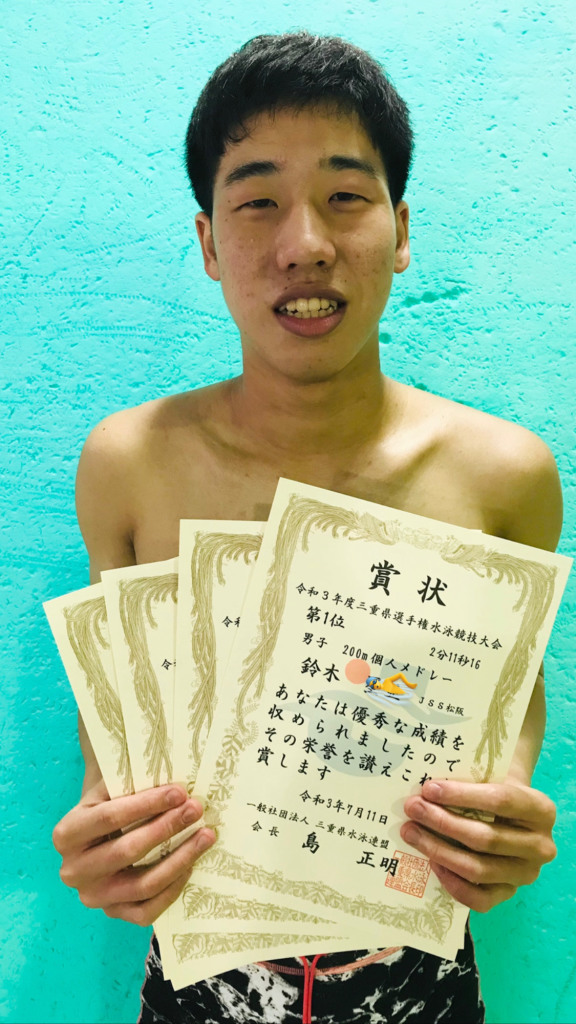 賞状
令和3年度三重県選手権水泳競技大会
第1位 2分11秒16
男子 200m個人メドレー
鈴木 JSS松阪
あなたは優秀な成績を
収められましたので
その栄誉を讃えこれ
賞します
令和3年7月11日
一般社団法人 三重県水泳連盟
会長 島 正明
令
令
令